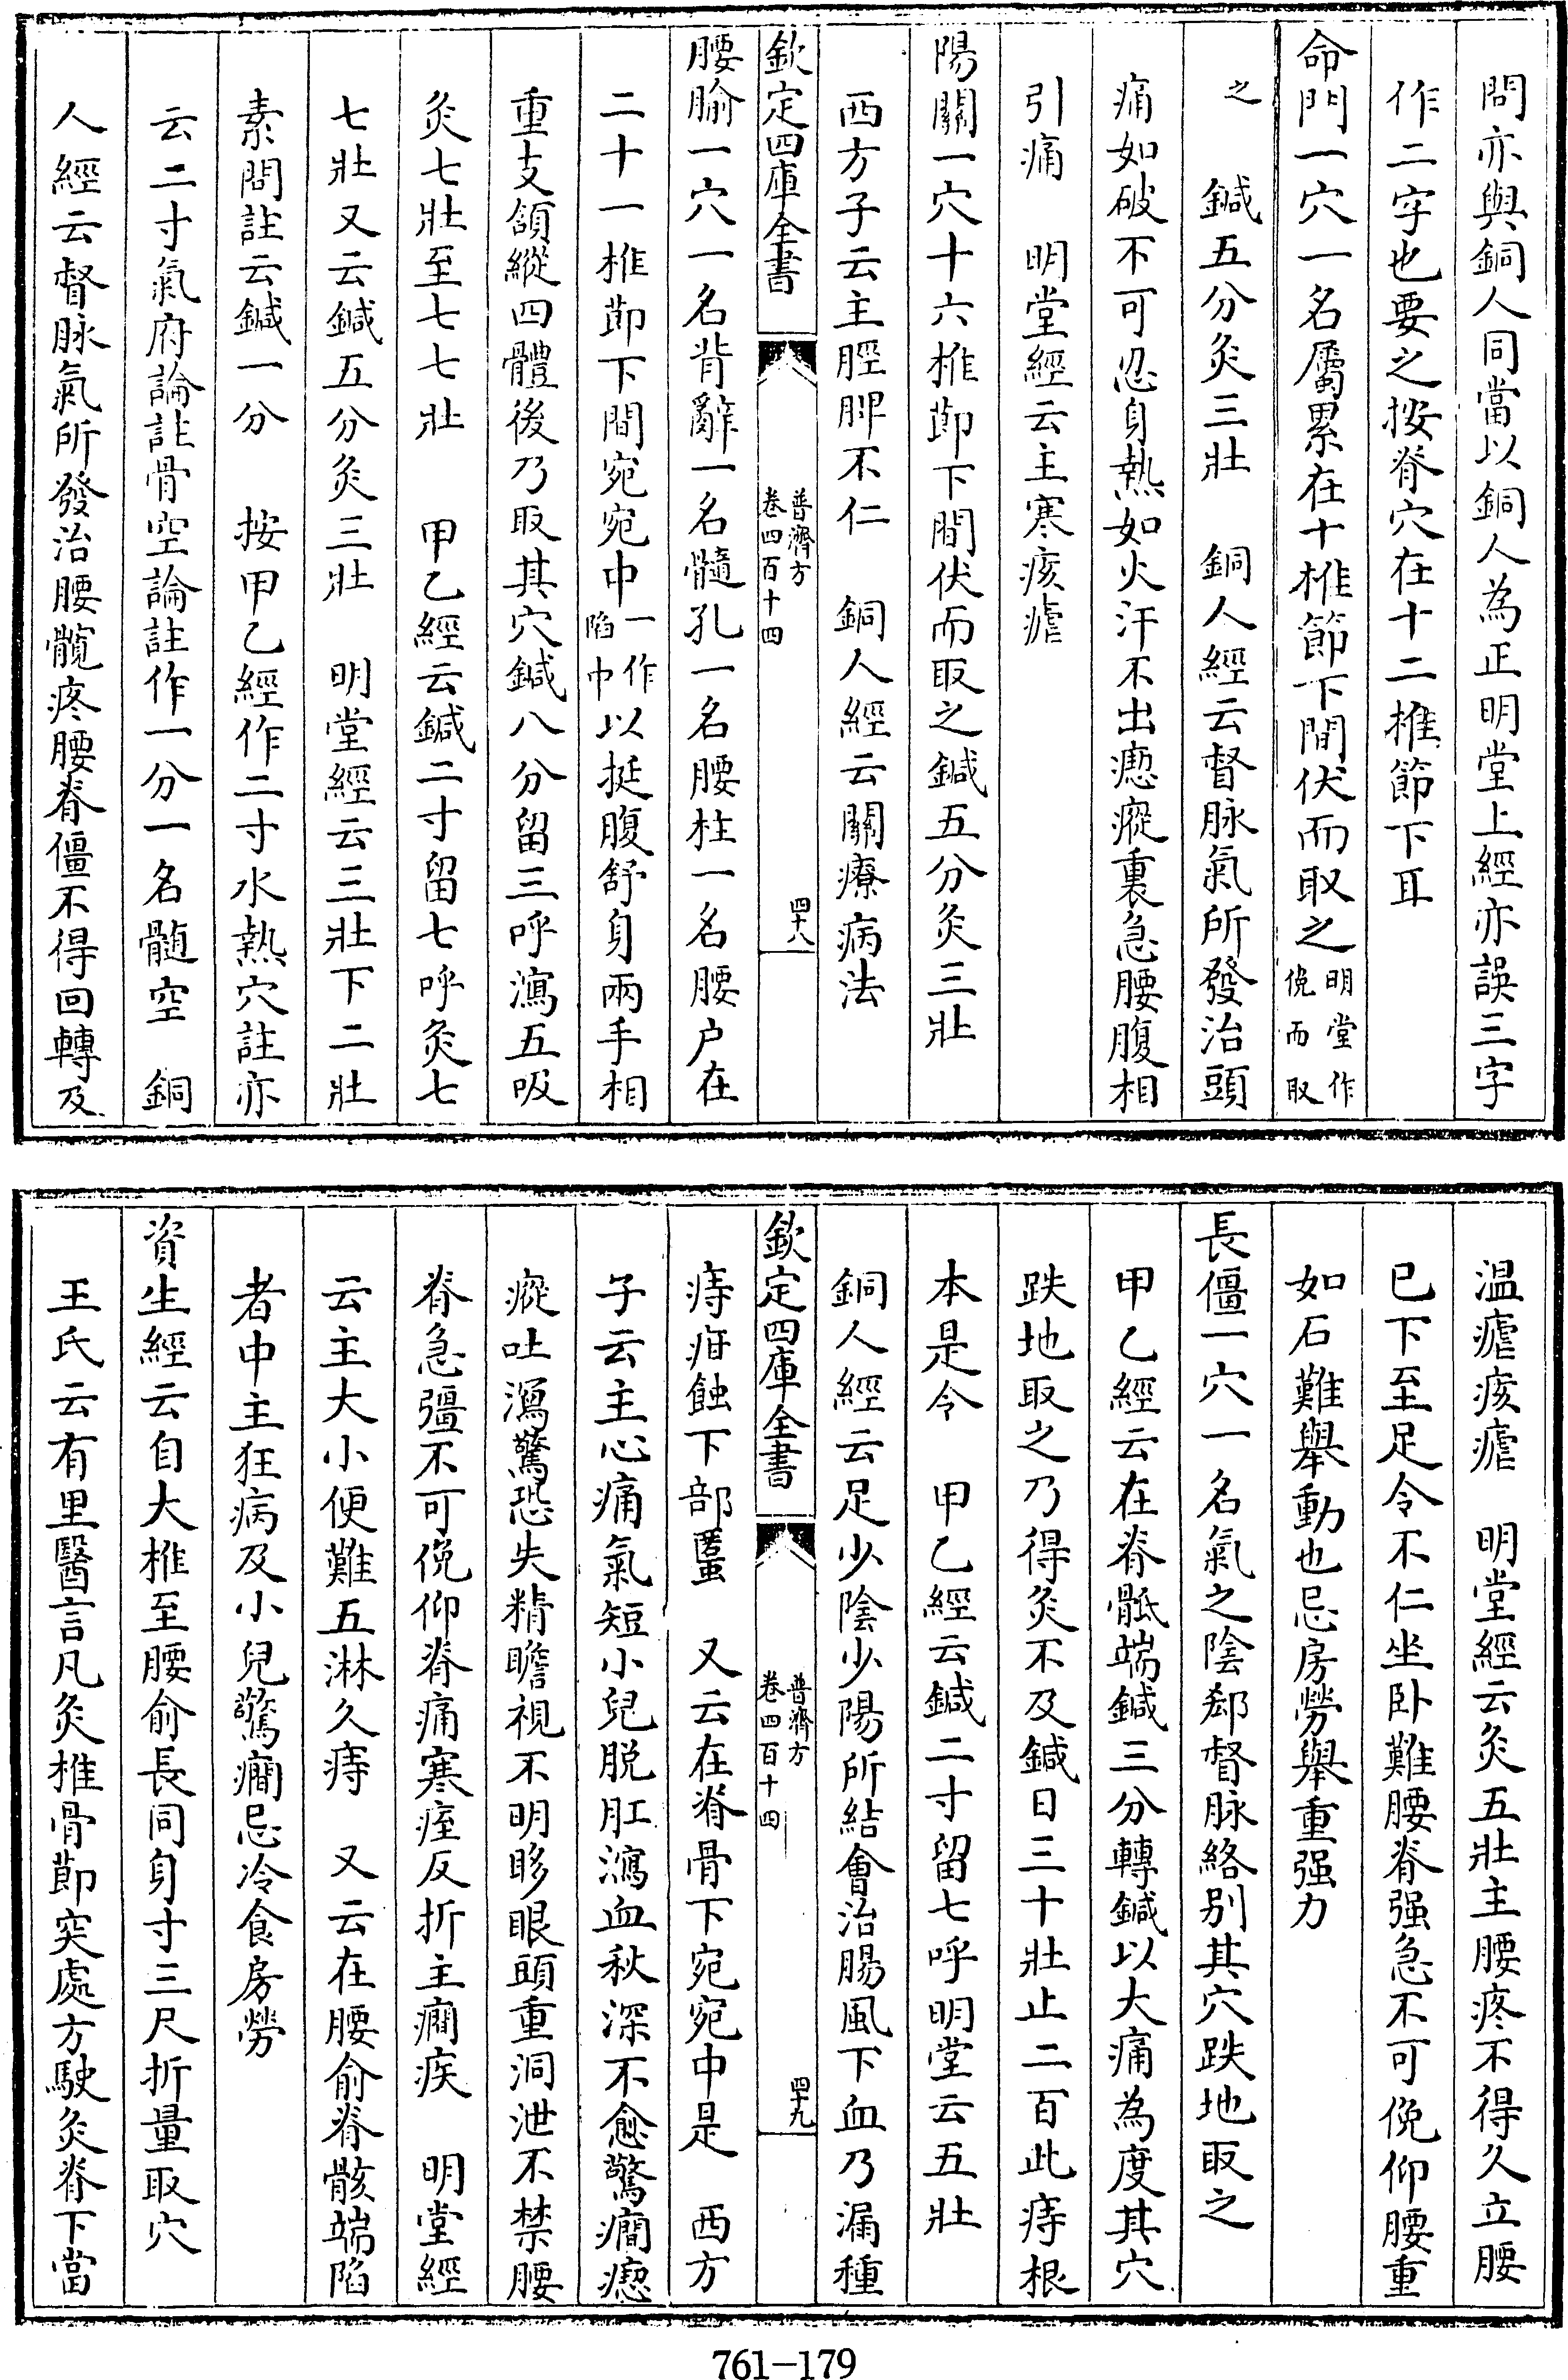 問亦與銅人同當以銅人為正明堂上經亦誤三字
作二字也要之按脊穴在十二椎節下耳
命門一穴一名屬累在十椎節下間伏而取之明堂作俛而取
之　鍼五分灸三壯　銅人經云督脉氣所發治頭
痛如破不可忍身熱如火汗不出瘛瘲裏急腰腹相
引痛　明堂經云主寒痎瘧
陽關一穴十六椎節下間伏而取之鍼五分灸三壯
西方子云主脛脾不仁　銅人經云關療病法
欽定四庫全書　普濟方卷四百十四　四十八
腰腧一穴一名背辭一名髓孔一名腰柱一名腰户在
二十一椎節下間宛宛中一作陷中以挺腹舒身兩手相
重支頷縱四體後乃取其穴鍼八分留三呼瀉五吸
灸七壯至七七壯　甲乙經云鍼二寸留七呼灸七
七壯又云鍼五分灸三壯　明堂經云三壯下二壯
素問註云鍼一分　按甲乙經作二寸水熱穴註亦
云二寸氣府論註骨空論註作一分一名髄空　銅
人經云督脉氣所發治腰髖疼腰脊僵不得回轉及
温瘧痎瘧　明堂經云灸五壯主腰疼不得久立腰
已下至足令不仁坐卧難腰脊强急不可俛仰腰重
如石難舉動也忌房勞舉重强力
長僵一穴一名氣之陰郄督脉絡别其穴跌地取之
甲乙經云在脊骶端鍼三分轉鍼以大痛為度其穴
跌地取之乃得灸不及鍼日三十壯止二百此痔根
本是令　甲乙經云鍼二寸留七呼明堂云五壯
銅人經云足少陰少陽所結會治腸風下血乃漏種
欽定四庫全書　普濟方卷四百十四　四十九
痔疳蝕下部䘌　又云在脊骨下宛宛中是　西方
子云主心痛氣短小兒脱肛瀉血秋深不愈驚癎瘛
瘲吐瀉驚恐失精瞻視不明眵眼頭重洞泄不禁腰
脊急彊不可俛仰脊痛寒痓反折主癎疾　明堂經
云主大小便難五淋久痔　又云在腰俞脊骸端陷
者中主狂病及小兒驚癎忌冷食房勞
資生經云自大椎至腰俞長同身寸三尺折量取穴
王氏云有里醫言凡灸椎骨節突處方駛灸脊下當
761-179